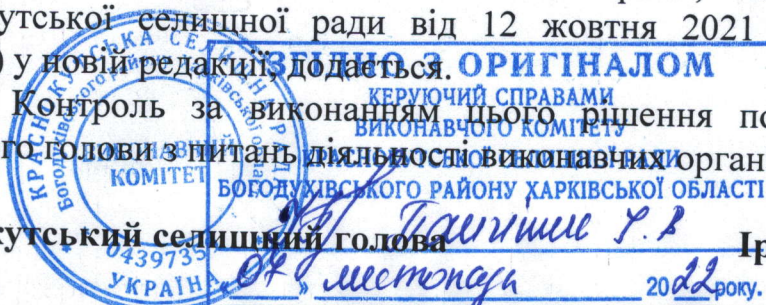 утської селищної ради від 12 жовтня 2021
) у новій редакції, додається.
Контроль за виконанням цього рішення по
го голови з питань діяльності виконавчих орган
кутський селищний голова
Ір
ЗГІДНО З ОРИГІНАЛОМ
КЕРУЮЧИЙ СПРАВАМИ
ВИКОНАВЧОГО КОМІТЕТУ
КРАСНОКУТСЬКОЇ СЕЛИЩНОЇ РАДИ
БОГОДУХІВСЬКОГО РАЙОНУ ХАРКІВСЬКОЇ ОБЛАСТІ
«07» листопада 2022 року.
КРАСНОКУТСЬКА СЕЛИЩНА РАДА
Богодухівського району Харківської області
ВИКОНАВЧИЙ
КОМІТЕТ
0439735
УКРАЇНА